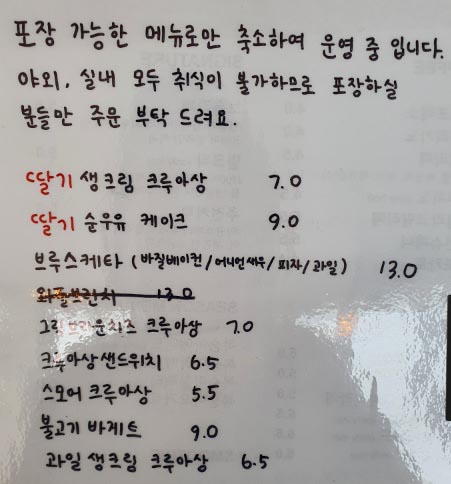 포장 가능한 메뉴로만 축소하여 운영 중 입니다.
야외, 실내 모두 취식이 불가하므로 포장하실
분들만 주문 부탁 드려요.
딸기 생크림 크루아상 7.0
딸기 순우유 케이크 9.0
브루스케타 (바질베이컨/어니언새우/피자/과일) 13.0
와플브런치 13.0
그릭브라운치즈 크루아상 7.0
크루아상샌드위치 6.5
스모어 크루아상 5.5
불고기 바게트 9.0
과일 생크림 크루아상 6.5